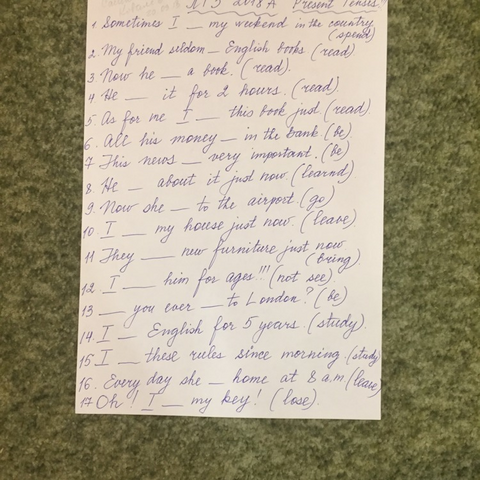 N13 2018 A Present Tenses
1 Sometimes I __ my weekend in the country
(spend)
2 My friend seldom _ English books (read)
3 Now he __ a book. (read).
4 He __ it for 2 hours. (read).
5 As for me I __ this book just (read).
6. All his money _ in the bank. (be)
7 This news __ very important. (be)
8. He _ about it just now (learnd)
9. Now she __ to the airport. (go)
10. I __ my house just now. (leave)
11 They __ new furniture just now
(bring)
12 I __ him for ages!!! (not see).
13 __ you ever __ to London? (be)
14. I __ English for 5 years. (study).
15. I __ these rules since morning. (study
16. Every day she _ home at 8 a.m (leave)
17 Oh! I __ my key! (lose).